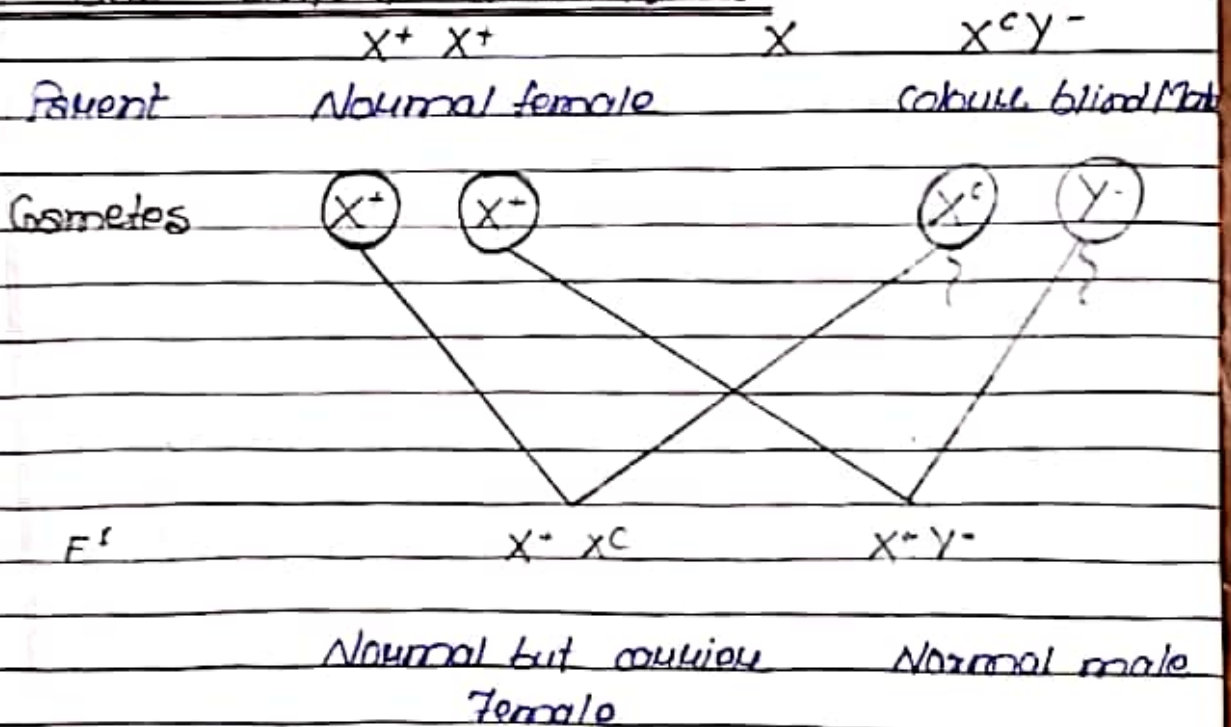 X+ X+ X XcY-
Parent Normal female Colour blind Male
Gametes X+ X+ Xc Y-
F1 X+ Xc X+Y-
Normal but carrier Normal male
Female